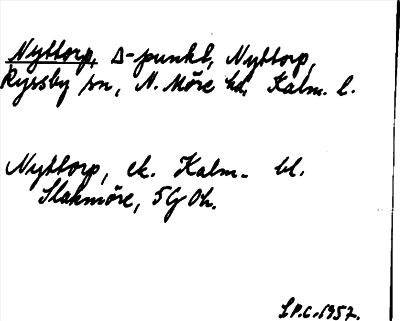 Nyttorp, Δ-punkt, Nyttorp,
Ryssby sn, N. Möre hd, Kalm. l.
Nyttorp, ek. Kalm. bl.
Slakmöre, 5G Oh.
1957.